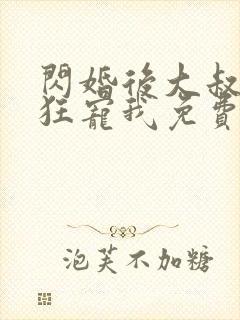 閃婚後大叔
狂寵我免費
泡芙不加糖